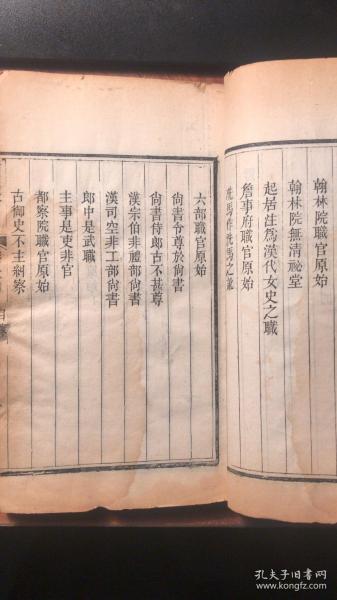 翰林院職官原始
翰林院無清祕堂
起居注爲漢代女史之職
詹事府職官原始
洗馬作先馬之譌
六部職官原始
尙書令尊於尙書
尙書侍郎古不甚尊
漢宗伯非禮部尙書
漢司空非工部尙書
郎中是武職
主事是吏非官
都察院職官原始
古御史不主糾察
孔夫子旧书网
www.kongfz.com